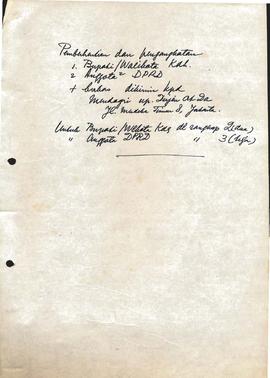 Pemberhentian dan pengangkatan
1. Bupati/Walikota Kdh.
2 Anggota² DPRD
+ berkas dikirim kpd
Mendagri up.
Jl. Medeka Timur 8, Jakarta.
Untuk Bupati/Wlkota Kdh dl rangkap 2 (dua)
" Anggota DPRD " 3 (tiga)